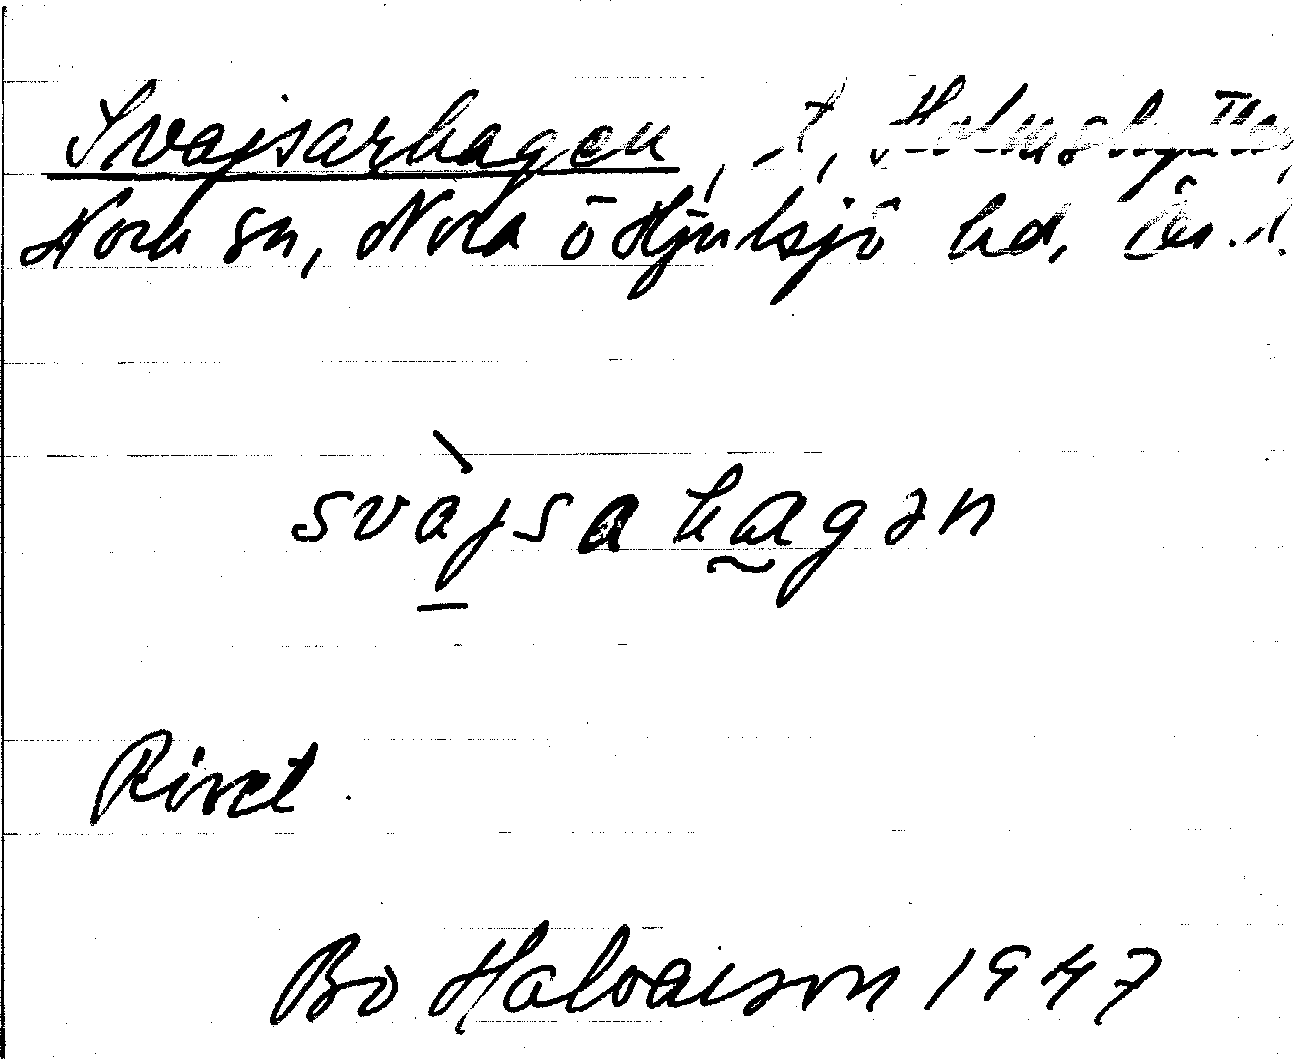 Svajsarhagen, t, Holmshyttan,
Nora sn, Nora o Hjulsjö hd,
svàjsahagən
Rivet.
Bo Halvarson 1947